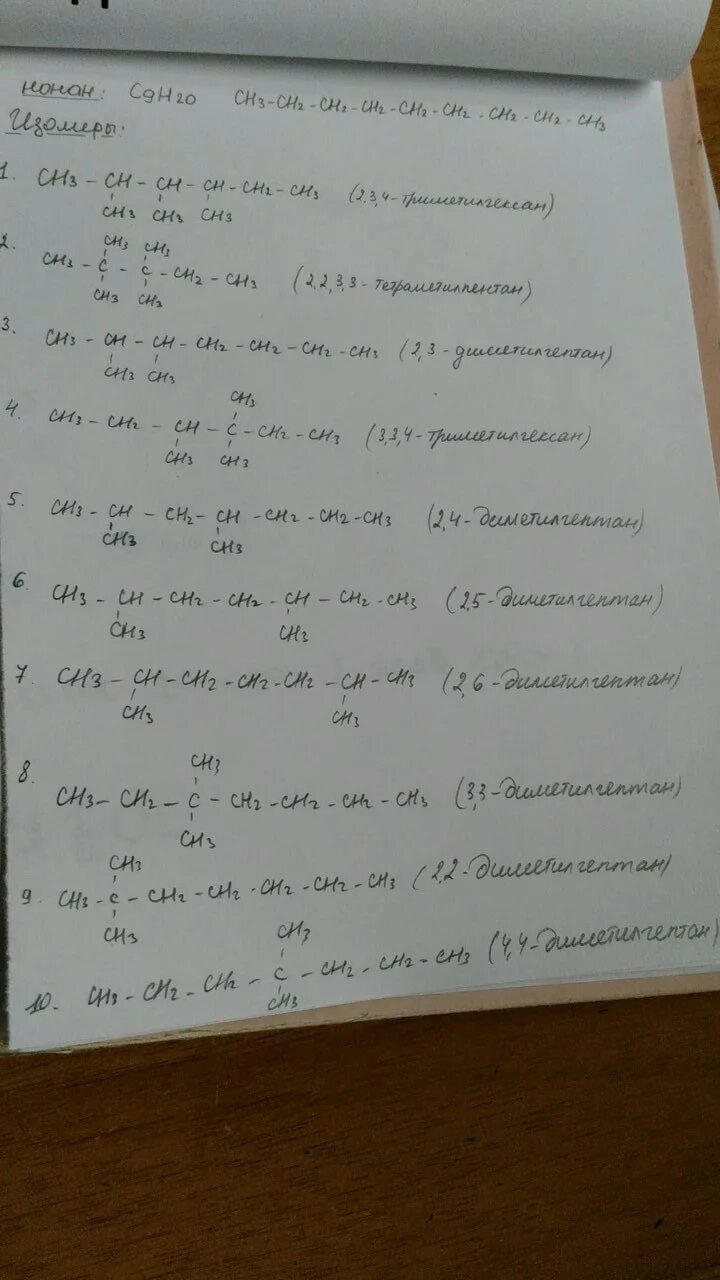 нонан: C9H20 CH3-CH2-CH2-CH2-CH2-CH2-CH2-CH2-CH3
Изомеры:
1. CH3-CH-CH-CH-CH2-CH3 (2,3,4-триметилгексан)
CH3 CH3 CH3
CH3 CH3
2. CH3-C-C-CH2-CH3 (2,2,3,3-тетраметилпентан)
CH3 CH3
3. CH3-CH-CH-CH2-CH2-CH2-CH3 (2,3-диметилгептан)
CH3 CH3
CH3
4. CH3-CH2-CH-C-CH2-CH3 (3,3,4-триметилгексан)
CH3 CH3
5. CH3-CH-CH2-CH-CH2-CH2-CH3 (2,4-диметилгептан)
CH3 CH3
6. CH3-CH-CH2-CH2-CH-CH2-CH3 (2,5-диметилгептан)
CH3 CH3
7. CH3-CH-CH2-CH2-CH2-CH-CH3 (2,6-диметилгептан)
CH3 CH3
CH3
8. CH3-CH2-C-CH2-CH2-CH2-CH3 (3,3-диметилгептан)
CH3
CH3
9. CH3-C-CH2-CH2-CH2-CH2-CH3 (2,2-диметилгептан)
CH3
CH3
10. CH3-CH2-CH2-C-CH2-CH2-CH3 (4,4-диметилгептан)
CH3